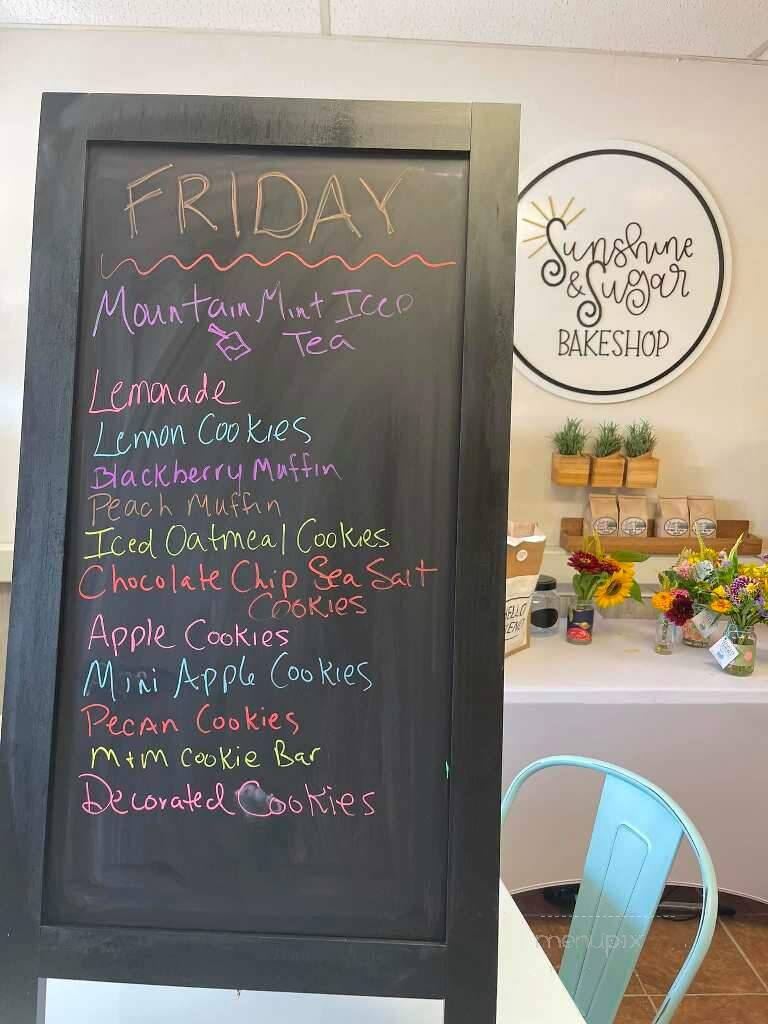 FRIDAY
Mountain Mint Iced
Tea
Lemonade
Lemon Cookies
Blackberry Muffin
Peach Muffin
Iced Oatmeal Cookies
Chocolate Chip Sea Salt
Cookies
Apple Cookies
Mini Apple Cookies
Pecan Cookies
M+M Cookie Bar
Decorated Cookies
Sunshine
& Sugar
BAKESHOP
HELLO
menupix